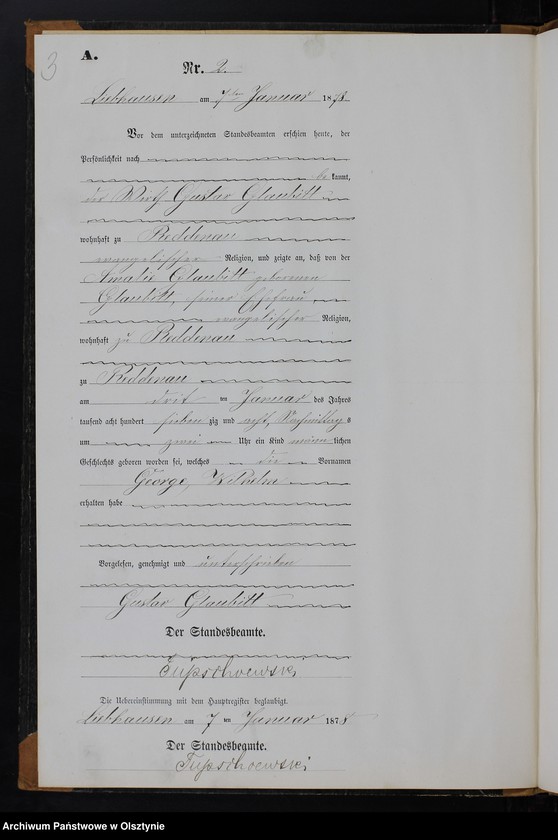 3
A.
Nr. 2.
Liebhausen am 7ten Januar 1878
Vor dem unterzeichneten Standesbeamten erschien heute, der
Persönlichkeit nach
be kannt,
der Wirth Gustav Glaubitt
wohnhaft zu Reddenau
evangelischer Religion, und zeigte an, daß von der
Amalie Glaubitt geborenen
Glaubitt, seiner Ehefrau
evangelischer Religion,
wohnhaft zu Reddenau
zu Reddenau
am drit ten Januar des Jahres
tausend acht hundert sieben zig und acht, Nachmittag s
um zwei Uhr ein Kind männ lichen
Geschlechts geboren worden sei, welches die Vornamen
George, Wilhelm
erhalten habe
Vorgelesen, genehmigt und unterschrieben
Gustav Glaubitt
Der Standesbeamte.
Die Uebereinstimmung mit dem Hauptregister beglaubigt.
Liebhausen am 7 ten Januar 1878
Der Standesbeamte.
Archiwum Państwowe w Olsztynie